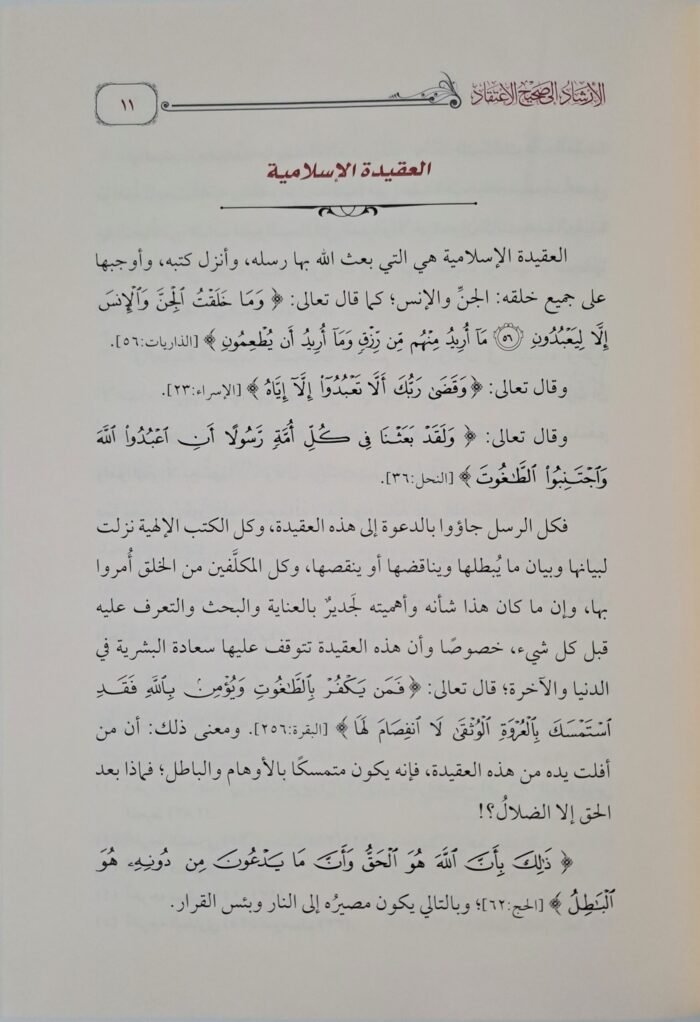 الإرشاد إلى صحيح الاعتقاد
١١
العقيدة الإسلامية
العقيدة الإسلامية هي التي بعث الله بها رسله، وأنزل كتبه، وأوجبها
على جميع خلقه: الجنِّ والإنس؛ كما قال تعالى: ﴿ وَمَا خَلَقْتُ ٱلْجِنَّ وَٱلْإِنسَ
إِلَّا لِيَعْبُدُونِ ۝٥٦ مَآ أُرِيدُ مِنْهُم مِّن رِّزْقٍ وَمَآ أُرِيدُ أَن يُطْعِمُونِ ﴾ [الذاريات:٥٦].
وقال تعالى: ﴿ وَقَضَىٰ رَبُّكَ أَلَّا تَعْبُدُوٓا۟ إِلَّآ إِيَّاهُ ﴾ [الإسراء:٢٣].
وقال تعالى: ﴿ وَلَقَدْ بَعَثْنَا فِى كُلِّ أُمَّةٍ رَّسُولًا أَنِ ٱعْبُدُوا۟ ٱللَّهَ
وَٱجْتَنِبُوا۟ ٱلطَّـٰغُوتَ ﴾ [النحل:٣٦].
فكل الرسل جاؤوا بالدعوة إلى هذه العقيدة، وكل الكتب الإلهية نزلت
لبيانها وبيان ما يُبطلها ويناقضها أو ينقصها، وكل المكلَّفين من الخلق أُمروا
بها، وإن ما كان هذا شأنه وأهميته لَجديرٌ بالعناية والبحث والتعرف عليه
قبل كل شيء، خصوصًا وأن هذه العقيدة تتوقف عليها سعادة البشرية في
الدنيا والآخرة؛ قال تعالى: ﴿ فَمَن يَكْفُرْ بِٱلطَّـٰغُوتِ وَيُؤْمِنۢ بِٱللَّهِ فَقَدِ
ٱسْتَمْسَكَ بِٱلْعُرْوَةِ ٱلْوُثْقَىٰ لَا ٱنفِصَامَ لَهَا ﴾ [البقرة:٢٥٦]. ومعنى ذلك: أن من
أفلت يده من هذه العقيدة، فإنه يكون متمسكًا بالأوهام والباطل؛ فماذا بعد
الحق إلا الضلالُ؟!
﴿ ذَٰلِكَ بِأَنَّ ٱللَّهَ هُوَ ٱلْحَقُّ وَأَنَّ مَا يَدْعُونَ مِن دُونِهِۦ هُوَ
ٱلْبَـٰطِلُ ﴾ [الحج:٦٢]؛ وبالتالي يكون مصيرُه إلى النار وبئس القرار.